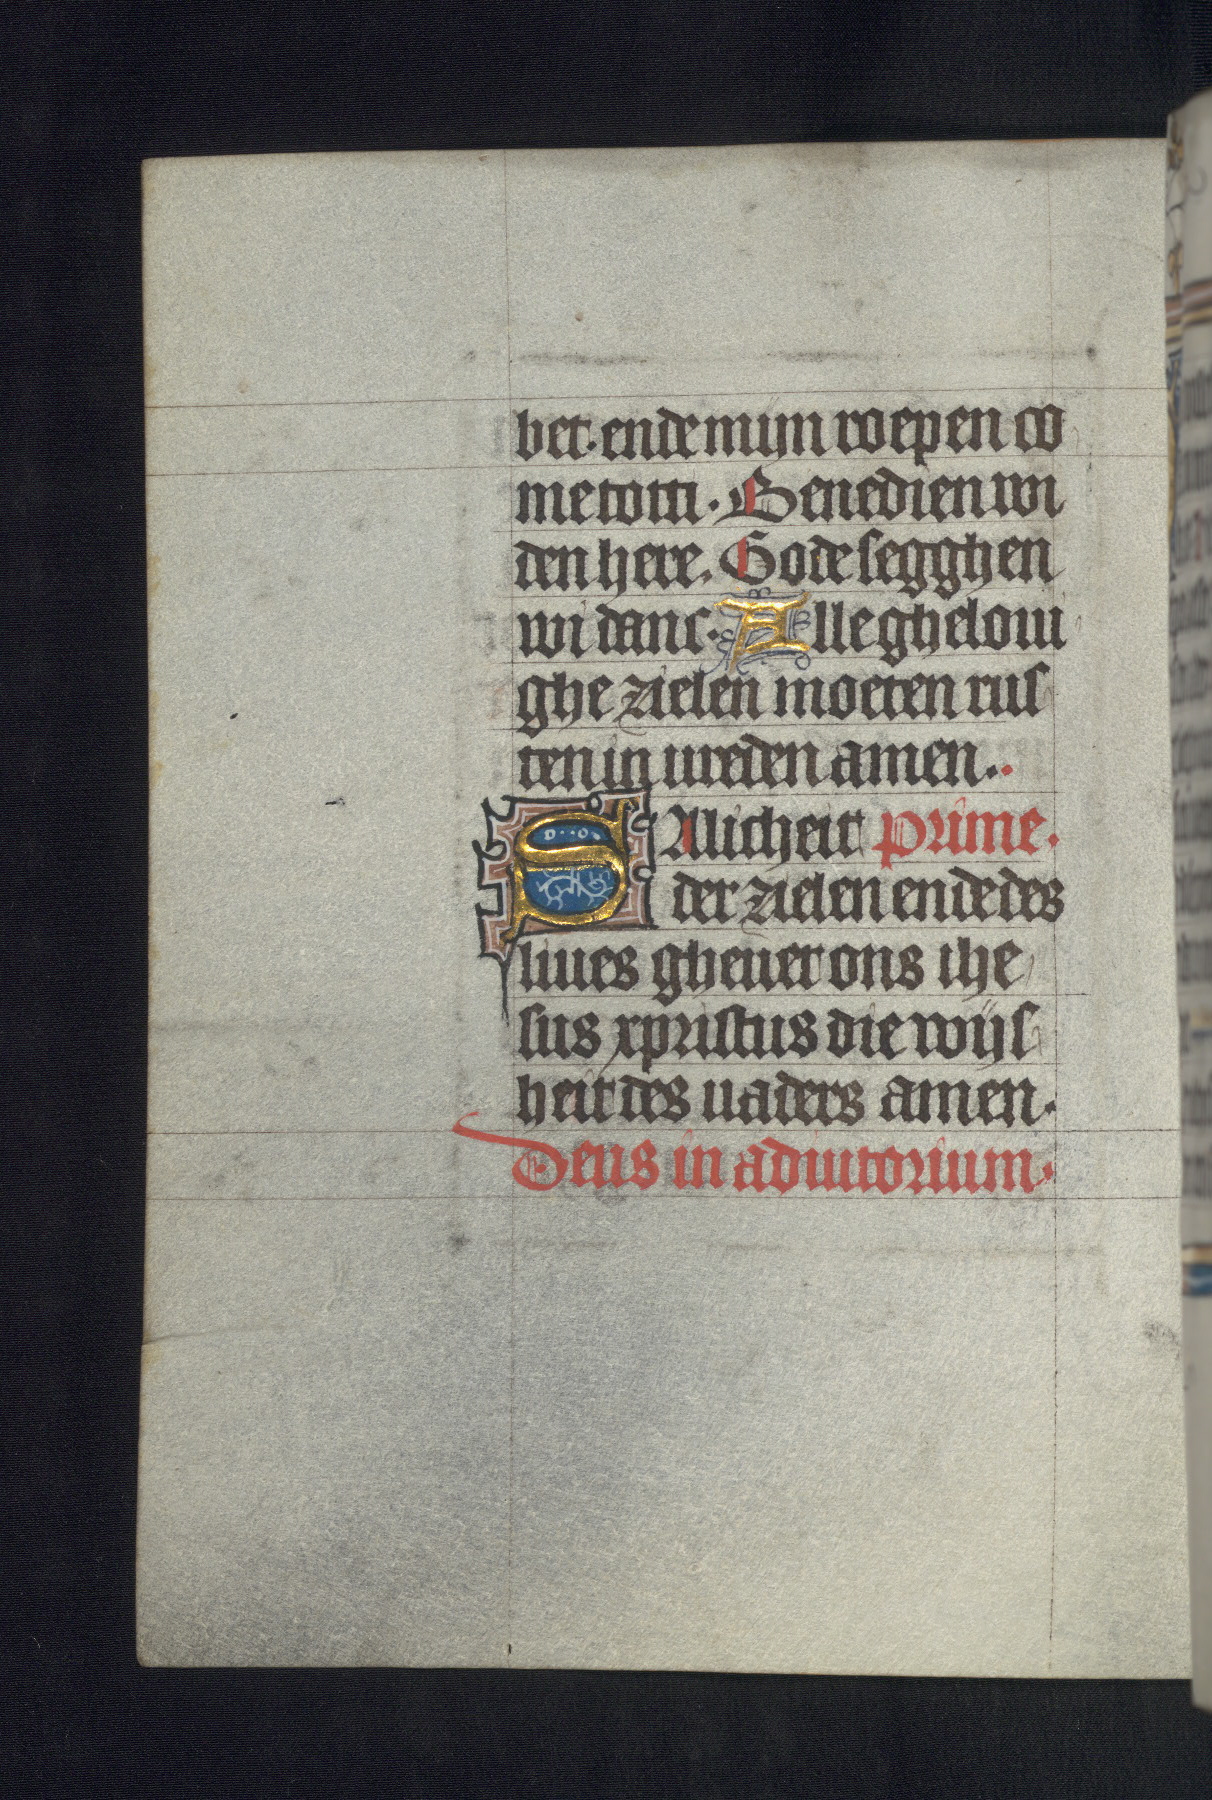 bet. ende mijn roepen co
me totti. Benedien wi
den here. Gode segghen
wi danc. Alle ghelouui
ghe zielen moeten rus
ten in ureden amen..
SAlicheit prime.
der zielen ende des
liues gheuet ons ihe
sus xpristus die wijs
heit des uaders amen.
Deus in adiutorium.